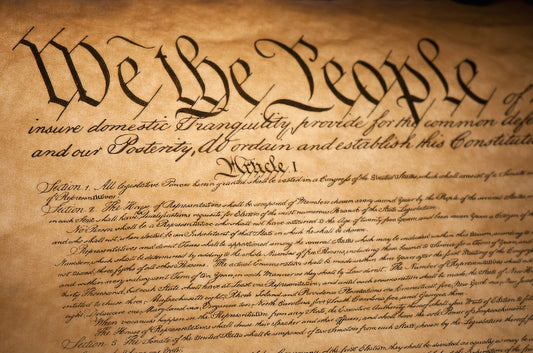 We the People of
insure domestic Tranquility, provide for the common defe
and our Posterity, do ordain and establish this Constituti
Article. I.
Section. 1. All legislative Powers herein granted shall be vested in a Congress of the United States, which shall consist of a Senate
of Representatives.
Section. 2. The House of Representatives shall be composed of Members chosen every second Year by the People of the several
in each State shall have Qualifications requisite for Electors of the most numerous Branch of the State Legislature.
No Person shall be a Representative who shall not have attained to the Age of twenty five Years, and been seven Years a Citizen of the
and who shall not, when elected, be an Inhabitant of that State in which he shall be chosen.
Representatives and direct Taxes shall be apportioned among the several States which may be included within this Union, according to
Numbers, which shall be determined by adding to the whole Number of free Persons, including those bound to Service for a Term of Years, and
not taxed, three fifths of all other Persons. The actual Enumeration shall be made within three Years after the first Meeting of the
and within every subsequent Term of ten Years, in such Manner as they shall by Law direct. The Number of Representatives shall
thirty Thousand, but each State shall have at Least one Representative; and until such enumeration shall be made, the State of New
entitled to chuse three, Massachusetts eight, Rhode Island and Providence Plantations one, Connecticut five, New York six, New
eight, Delaware one, Maryland six, Virginia ten, North Carolina five, South Carolina five, and Georgia
When vacancies happen in the Representation from any State, the Executive Authority thereof shall issue Writs of Election to
The House of Representatives shall chuse their Speaker and other Officers; and shall have the sole Power of Impeachment.
Section. 3. The Senate of the United States shall be composed of two Senators from each State, chosen by the Legislature thereof,
of the first Election, they shall be divided as equally as may be